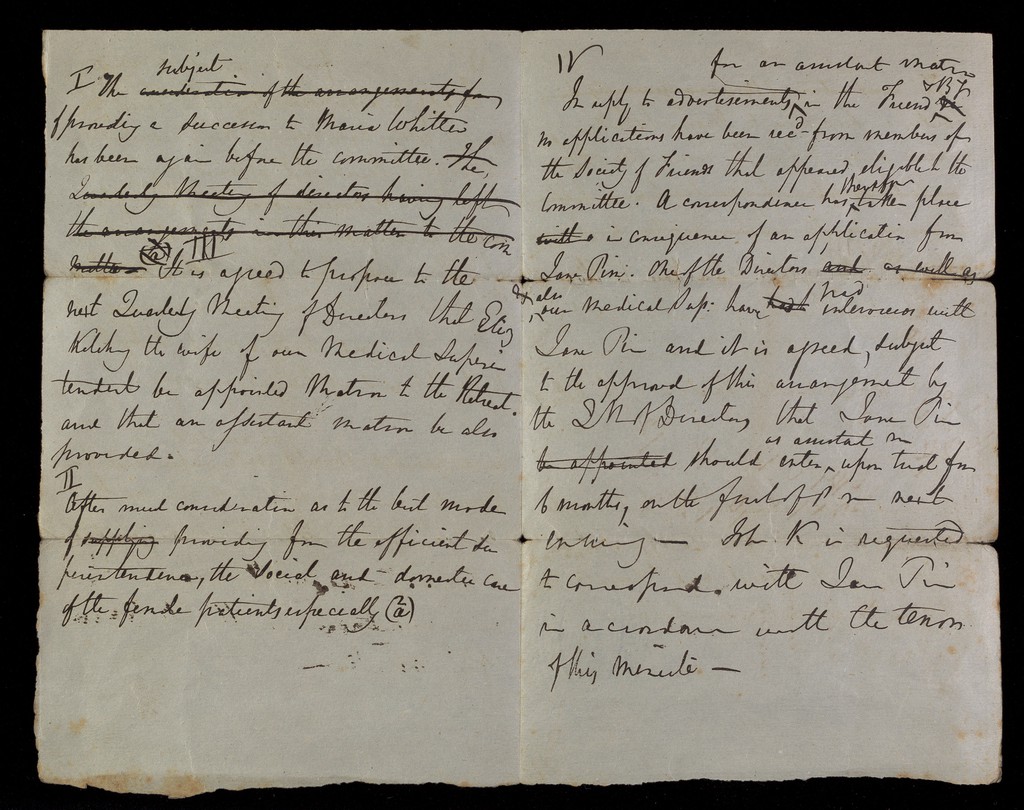 I The subject
consideration of the arrangements for
of providing a successor to Maria Whitten
has been again before the committee. The
Quarterly Meeting of directors having left
the arrangements in this matter to the Com
mittee (a) III It is agreed to propose to the
next Quarterly Meeting of Directors that Eliz
Kitching the wife of our Medical Superin
tendent be appointed Matron to the Retreat.
and that an assistant matron be also
provided.
II
After much consideration as to the best mode
of supplying providing for the efficient su
perintendence, the social and domestic care
of the female patients especially (a)
IV
for an assistant matron
In reply to advertisements in the Friend & B.F
no applications have been recd from members of
the Society of Friends that appeared eligible to the
Committee. A correspondence has therefore taken place
with a in consequence of an application from
Jane Pim. One of the Directors and as well as
& also our Medical Sup: have had had interviews with
Jane Pim and it is agreed, subject
to the approval of this arrangement by
the Q M of Directors that Jane Pim
be appointed should enter, as assistant m upon trial for
6 months, on the first of 8 m next
ensuing — John K is requested
to correspond with Jane Pim
in accordance with the tenor
of this minute —